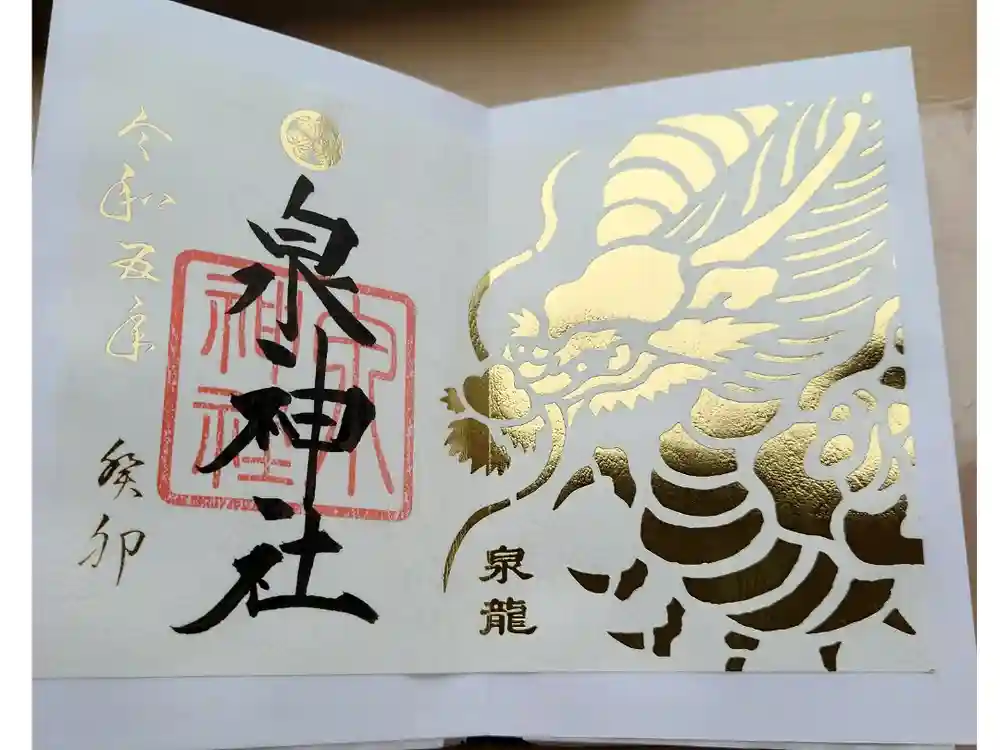 泉龍
泉神社
神社
令和五年
癸卯